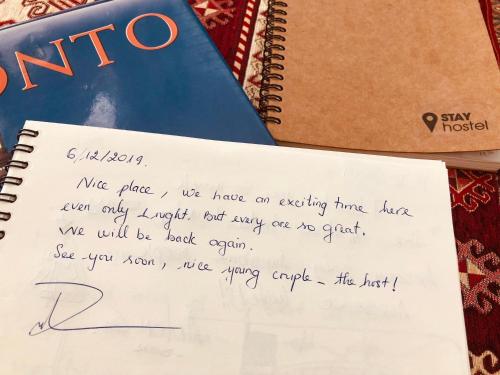 ONTO
STAY
hostel
6/12/2019.
Nice place, we have an exciting time here
even only 1 night. But every are so great.
We will be back again.
See you soon, nice young couple - the host!